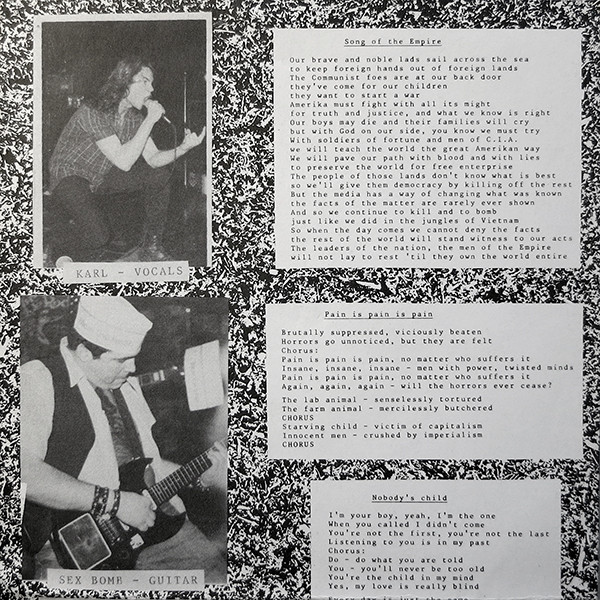 KARL - VOCALS
Song of the Empire
Our brave and noble lads sail across the sea
to keep foreign hands out of foreign lands
The Communist foes are at our back door
they've come for our children
they want to start a war
Amerika must fight with all its might
for truth and justice, and what we know is right
Our boys may die and their families will cry
but with God on our side, you know we must try
With soldiers of fortune and men of C.I.A.
we will teach the world the great Amerikan way
We will pave our path with blood and with lies
to preserve the world for free enterprise
The people of those lands don't know what is best
so we'll give them democracy by killing off the rest
But the media has a way of changing what was known
the facts of the matter are rarely ever shown
And so we continue to kill and to bomb
just like we did in the jungles of Vietnam
So when the day comes we cannot deny the facts
the rest of the world will stand witness to our acts
The leaders of the nation, the men of the Empire
will not lay to rest 'til they own the world entire
SEX BOMB - GUITAR
Pain is pain is pain
Brutally suppressed, viciously beaten
Horrors go unnoticed, but they are felt
Chorus:
Pain is pain is pain, no matter who suffers it
Insane, insane, insane - men with power, twisted minds
Pain is pain is pain, no matter who suffers it
Again, again, again - will the horrors ever cease?
The lab animal - senselessly tortured
The farm animal - mercilessly butchered
CHORUS
Starving child - victim of capitalism
Innocent men - crushed by imperialism
CHORUS
Nobody's child
I'm your boy, yeah, I'm the one
When you called I didn't come
You're not the first, you're not the last
Listening to you is in my past
Chorus:
Do - do what you are told
You - you'll never be too old
You're the child in my mind
Yes, my love is really blind